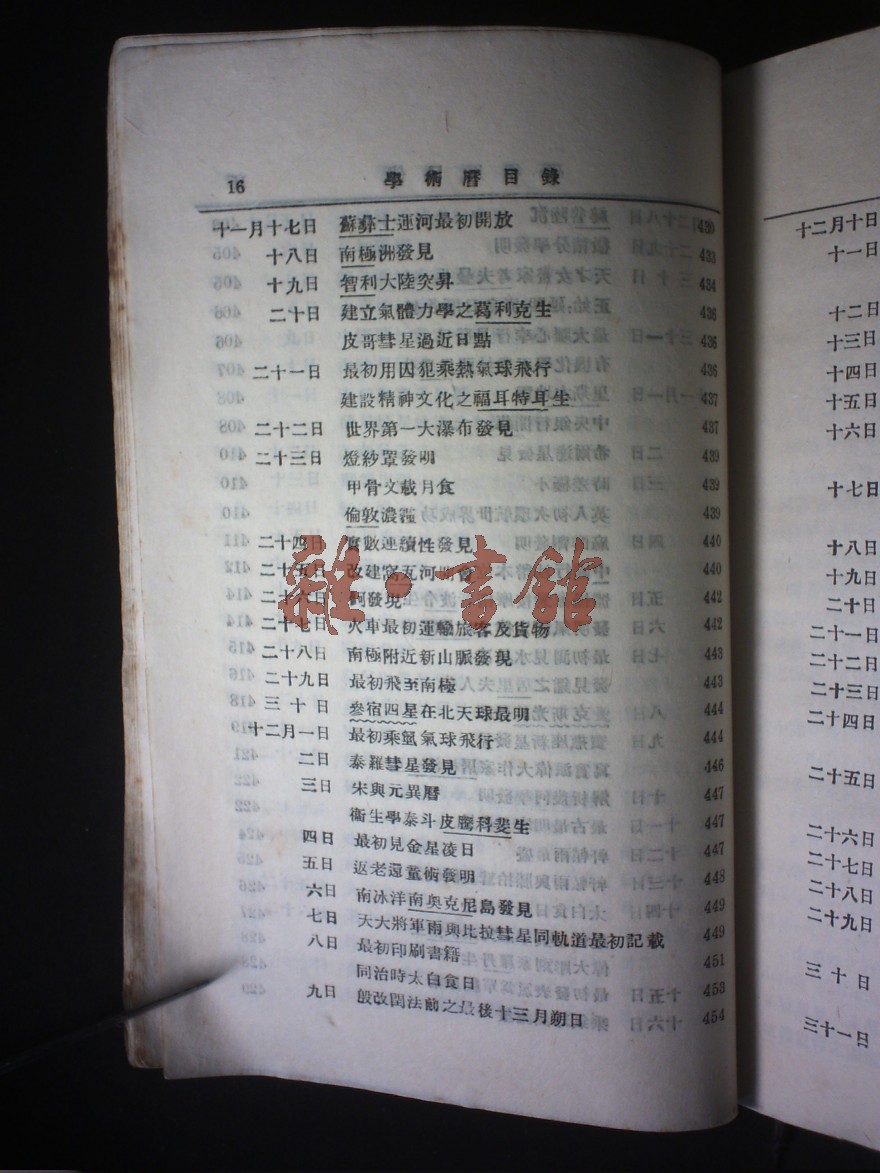 16 學術曆目錄
十一月十七日 蘇彝士運河最初開放 430
十八日 南極洲發見 433
十九日 智利大陸突昇 434
二十日 建立氣體力學之葛利克生 436
皮哥彗星過近日點 436
二十一日 最初用囚犯乘熱氣球飛行 436
建設精神文化之福耳特耳生 437
二十二日 世界第一大瀑布發見 437
二十三日 燈紗罩發明 439
甲骨文載月食 439
倫敦濃霧 439
二十四日 數連續性發見 440
二十五日 改建窩瓦河 440
二十六日 發現 442
二十七日 火車最初運輸旅客及貨物 442
二十八日 南極附近新山脈發現 443
二十九日 最初飛至南極 443
三十日 參宿四星在北天球最明 444
十二月一日 最初乘氫氣球飛行 444
二日 泰羅彗星發見 446
三日 宋與元異曆 447
衞生學泰斗皮騰科斐生 447
四日 最初見金星凌日 447
五日 返老還童術發明 448
六日 南冰洋南奧克尼島發見 449
七日 天大將軍雨與比拉彗星同軌道最初記載 449
八日 最初印刷書籍 451
同治時太白食日 453
九日 殷改閏法前之最後十三月朔日 454
雜·書館
十二月十日
十一日
十二日
十三日
十四日
十五日
十六日
十七日
十八日
十九日
二十日
二十一日
二十二日
二十三日
二十四日
二十五日
二十六日
二十七日
二十八日
二十九日
三十日
三十一日